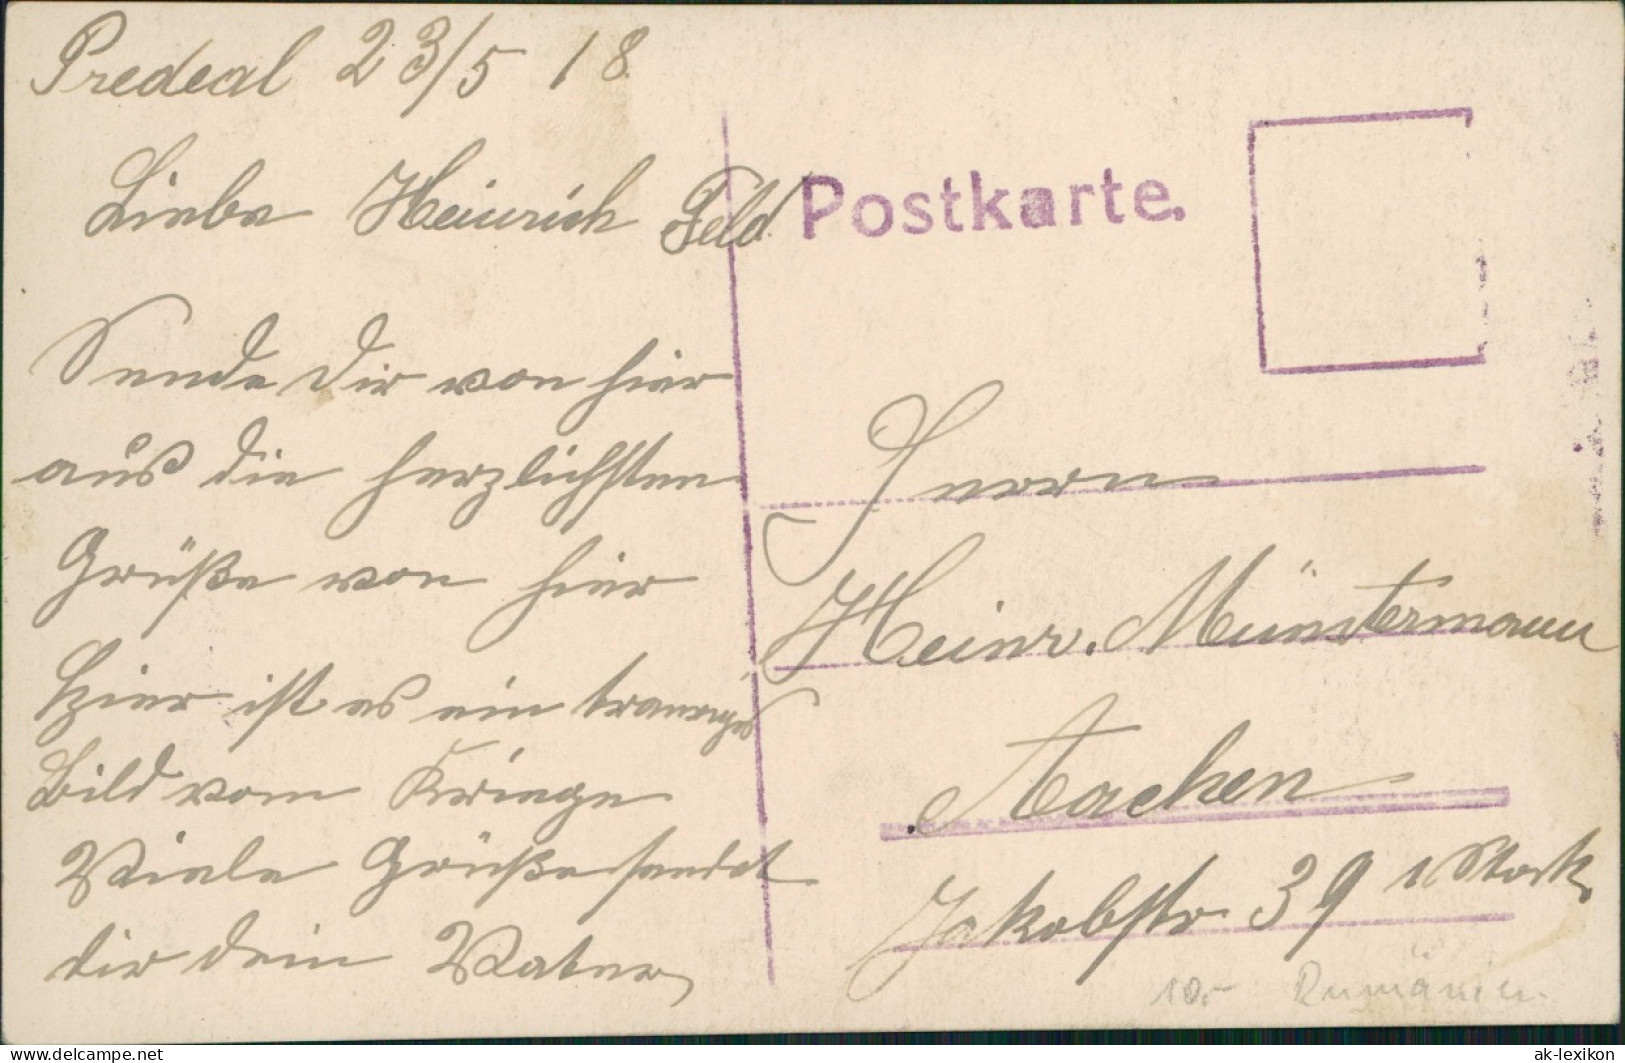 Predeal 23/5 18.
Liebe Heinrich Feld
Sende Dir von hier
aus die herzlichsten
Grüße von hier
Hier ist es ein trauriges
Bild vom Kriege
Viele Grüße sendet
dir dein Vater
Postkarte.
Herrn
Heinr. Münstermann
Aachen
Jakobstr 39 1 Stock
10,- Rumänien
ak-lexikon
www.delcampe.net/ak-lexikon.de